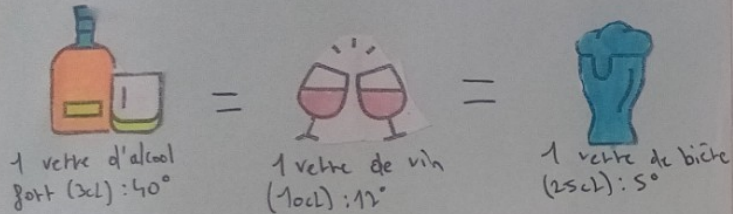 1 verre d'alcool
fort (3cL) : 40°
=
1 verre de vin
(10cL) : 12°
=
1 verre de bière
(25cL) : 5°